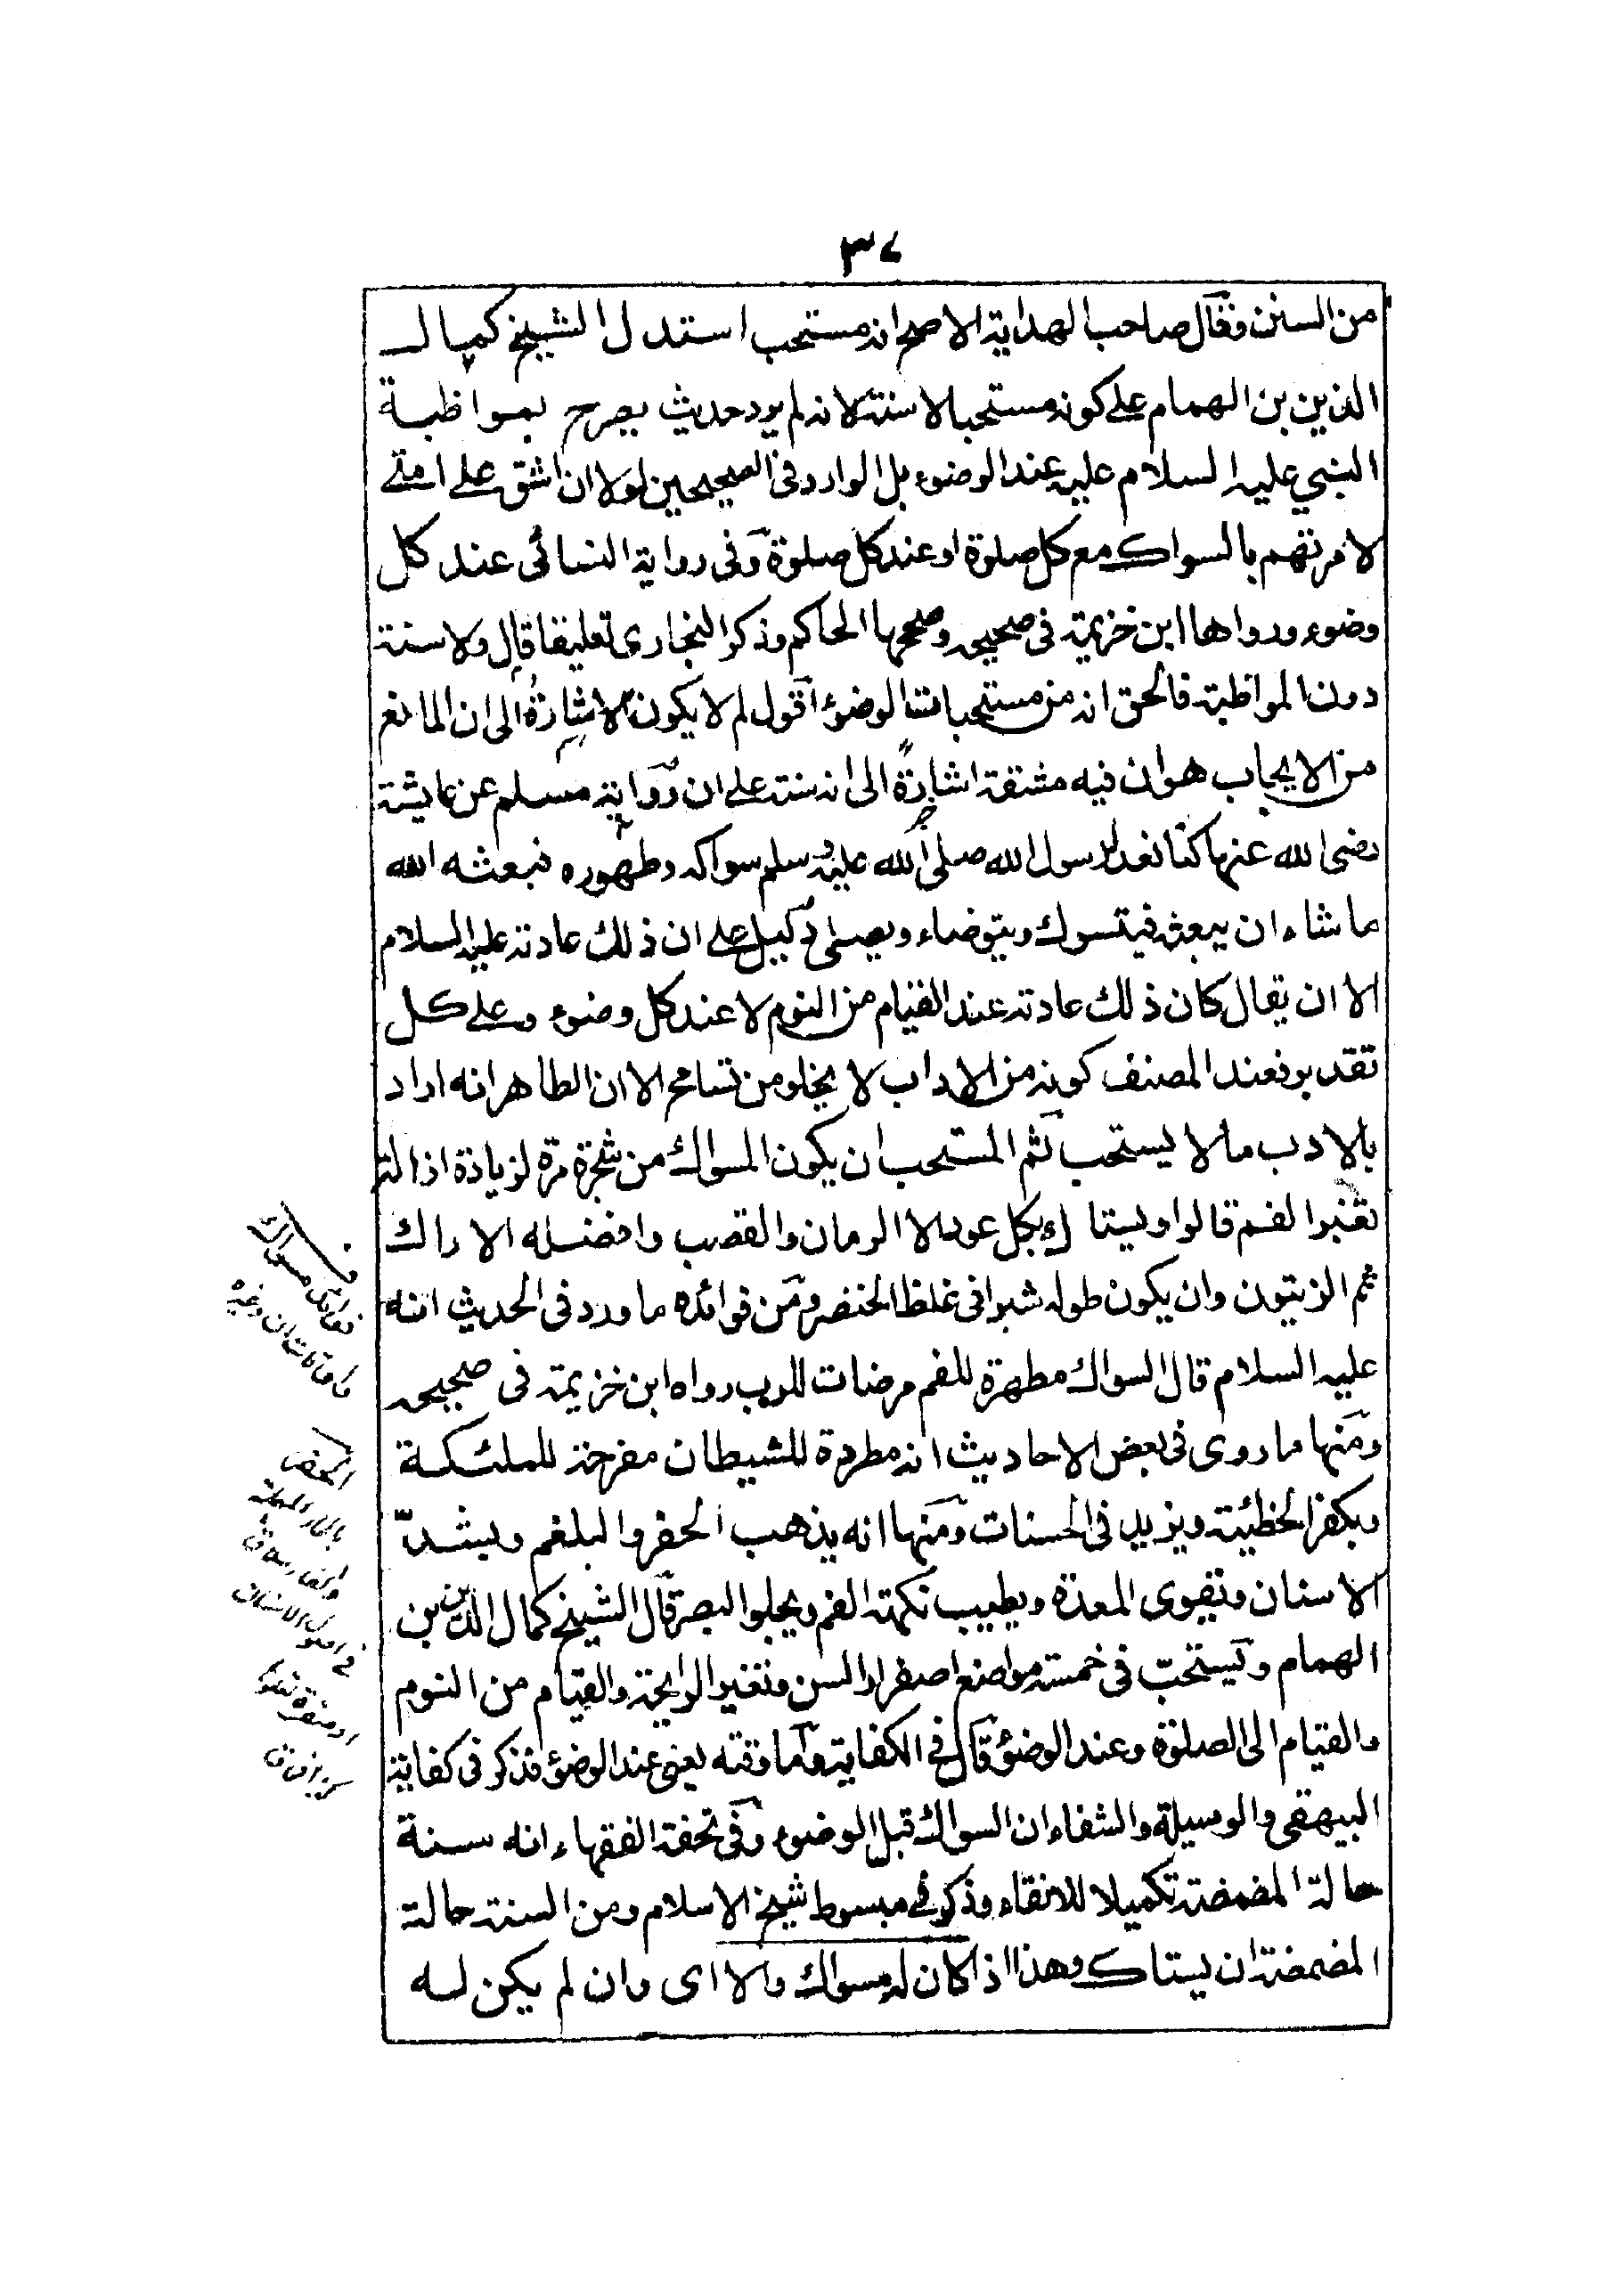 ٣٧
من السنن وقال صاحب الهداية الاصح انه مستحب استدل الشيخ كمال
الدين بن الهمام على كونه مستحبا لا سنة لانه لم يرد حديث يصرح بمواظبة
النبي عليه السلام عليه عند الوضوء بل الوارد في الصحيحين لولا ان اشق على امتى
لامرتهم بالسواك مع كل صلوة او عند كل صلوة وفى رواية النسائى عند كل
وضوء ورواها ابن خزيمة فى صحيحه وصححها الحاكم وذكر البخارى تعليقا قال ولا سنة
دون المواظبة فالحق انه من مستحبات الوضوء اقول لم لا يكون الاشارة الى ان المانع
من الايجاب هو ان فيه مشقة اشارة الى انه سنة على ان رواية مسلم عن عايشة
رضى الله عنها كنا نعد لرسول الله صلى الله عليه وسلم سواكه وطهوره فيبعثه الله
ما شاء ان يبعثه فيتسوك ويتوضاء ويصلى دليل على ان ذلك عادته عليه السلام
الا ان يقال كان ذلك عادته عند القيام من النوم لا عند كل وضوء وعلى كل
تقدير فعند المصنف كونه من الاداب لا يخلو من تسامح الا ان الظاهر انه اراد
بالادب ما لا يستحب ثم المستحب ان يكون السواك من شجرة مرة لزيادة ازالة
تغير الفم قالوا ويستاك بكل عود الا الرمان والقصب وافضله الاراك
ثم الزيتون وان يكون طوله شبرا فى غلظ الخنصر ومن فوائده ما ورد فى الحديث انه
عليه السلام قال السواك مطهرة للفم مرضات للرب رواه ابن خزيمة فى صحيحه
ومنها ما روى فى بعض الاحاديث انه مطردة للشيطان مفرحة للملئكة
ويكفر الخطيئة ويزيد فى الحسنات ومنها انه يذهب الحفر والبلغم ويشدّ
الاسنان ويقوى المعدة ويطيب نكهة الفم ويجلو البصر قال الشيخ كمال الدين بن
الهمام ويستحبّ فى خمسة مواضع اصفرار السن وتغير الرايحة والقيام من النوم
والقيام الى الصلوة وعند الوضوء قال في الكفاية واما وقته يعنى عند الوضوء فذكر فى كفاية
البيهقى والوسيلة والشفاء ان السواك قبل الوضوء وفى تحفة الفقهاء انه سنة
حالة المضمضة تكميلا للانقاء وذكر فى مبسوط شيخ الاسلام ومن السنة حالة
المضمضة ان يستاك وهذا اذا كان له مسواك والا اى وان لم يكن له
فوائد مسواك
الحفر